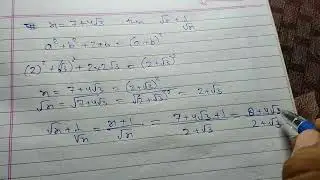 x = 7+4√3 √x + 1/√x
a² + b² + 2×a = (a+b)²
(2)² + (√3)² + 2×2√3 = (2+√3)²
x = 7+4√3 = (2+√3)²
√x = √7+4√3 = √(2+√3)² = 2+√3
√x + 1/√x = x+1/√x = 7+4√3+1/2+√3 = 8+4√3/2+√3